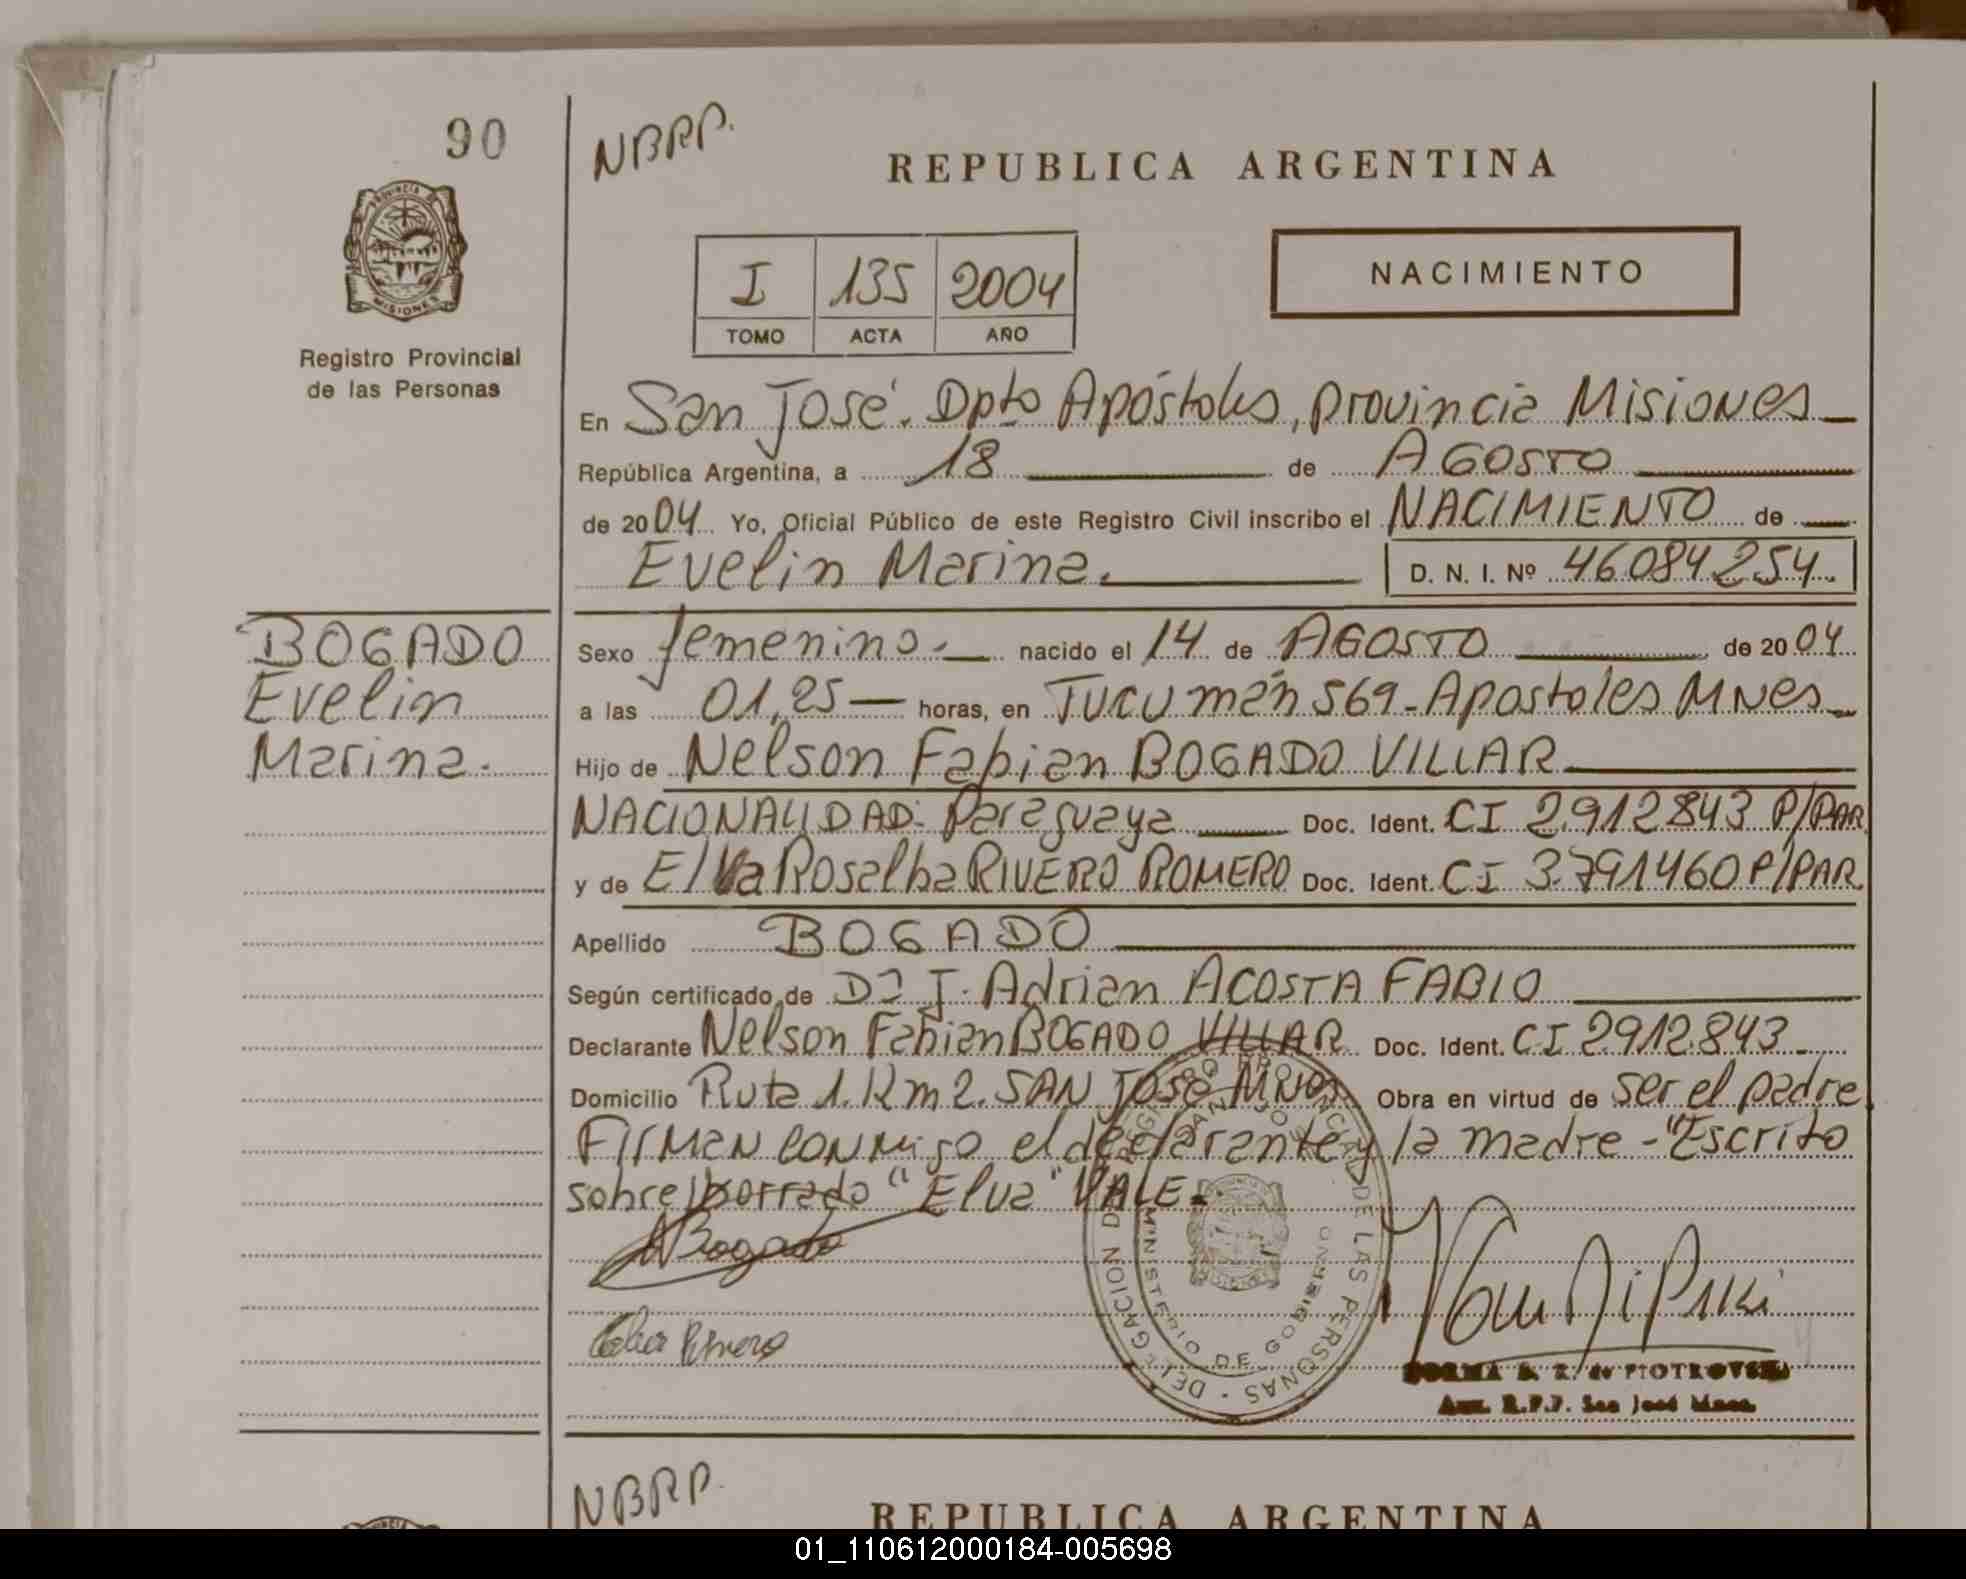 90
NBRP.
REPUBLICA ARGENTINA
PROVINCIA DE
MISIONES
Registro Provincial
de las Personas
I 135 2004
TOMO ACTA AÑO
NACIMIENTO
En San José. Dpto Apóstoles, provincia Misiones
República Argentina, a 18 de AGOSTO
de 2004 Yo, Oficial Público de este Registro Civil inscribo el NACIMIENTO de
Evelin Marina. D. N. I. Nº 46084254.
BOGADO
Evelin
Marina.
Sexo femenino. nacido el 14 de AGOSTO de 2004
a las 01,25 horas, en Tucumán 569-Apostoles MNes
Hijo de Nelson Fabian BOGADO VILLAR
NACIONALIDAD: Paraguaya Doc. Ident. CI 2.912843 P/PAR
y de Elva Rosalba RIVERO ROMERO Doc. Ident. CI 3.791460 P/PAR.
Apellido BOGADO
Según certificado de J. Adrian ACOSTA FABIO
Declarante Nelson Fabian BOGADO VILLAR Doc. Ident. CI 2.912.843
Domicilio Ruta 1. Km 2. SAN José MNes Obra en virtud de ser el padre
Firman conmigo el declarante y la madre - "Escrito
sobre borrado "Elva" VALE.
NBogado
Elva Rivero
DELEGACION REGISTRO PROVINCIAL DE LAS PERSONAS
SAN JOSE
MINISTERIO DE GOBIERNO
NORMA B. Z. de PIOTROVSKI
Aux. R.P.P. San José Mnes.
NBRP.
REPUBLICA ARGENTINA
01_110612000184-005698